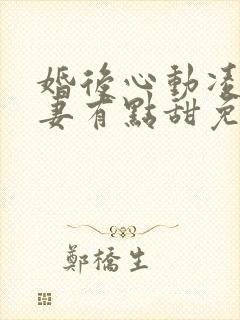 婚後心動凌
妻有點甜免
鄭橋生